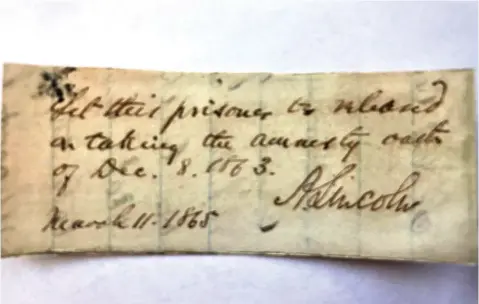 Let this prisoner be released
on taking the amnesty oath
of Dec. 8. 1863.
A. Lincoln
March 11. 1865